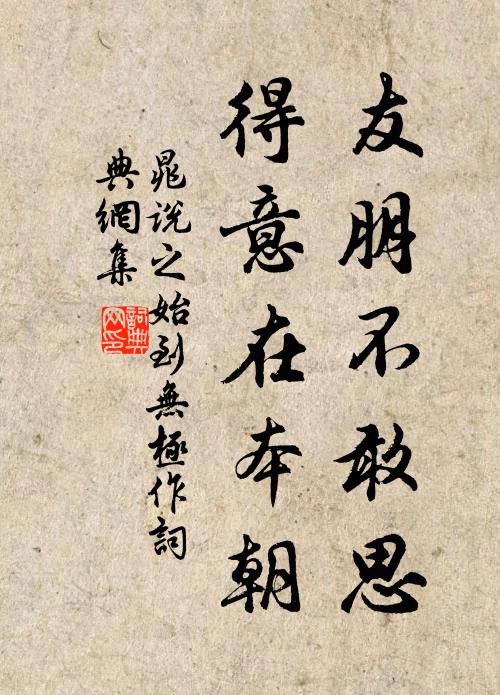 友朋不敢思
得意在本朝
晁说之始到無極作詞
典網集
詞典
网印